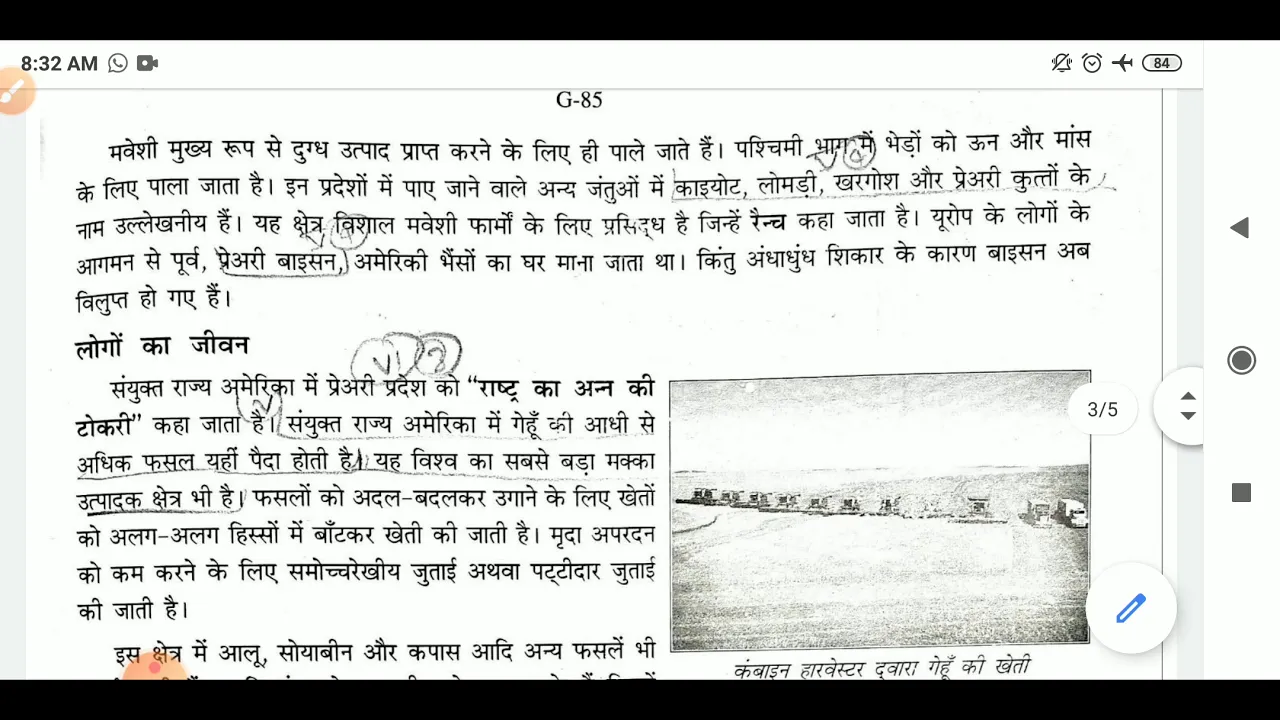 8:32 AM
84
G-85
मवेशी मुख्य रूप से दुग्ध उत्पाद प्राप्त करने के लिए ही पाले जाते हैं। पश्चिमी भाग में भेड़ों को ऊन और मांस
के लिए पाला जाता है। इन प्रदेशों में पाए जाने वाले अन्य जंतुओं में काइयोट, लोमड़ी, खरगोश और प्रेअरी कुत्तों के
नाम उल्लेखनीय हैं। यह क्षेत्र विशाल मवेशी फार्मों के लिए प्रसिद्ध है जिन्हें रैन्च कहा जाता है। यूरोप के लोगों के
आगमन से पूर्व, प्रेअरी बाइसन, अमेरिकी भैंसों का घर माना जाता था। किंतु अंधाधुंध शिकार के कारण बाइसन अब
विलुप्त हो गए हैं।
लोगों का जीवन
संयुक्त राज्य अमेरिका में प्रेअरी प्रदेश को “राष्ट्र का अन्न की
टोकरी” कहा जाता है। संयुक्त राज्य अमेरिका में गेहूँ की आधी से
अधिक फसल यहीं पैदा होती है। यह विश्व का सबसे बड़ा मक्का
उत्पादक क्षेत्र भी है। फसलों को अदल-बदलकर उगाने के लिए खेतों
को अलग-अलग हिस्सों में बाँटकर खेती की जाती है। मृदा अपरदन
को कम करने के लिए समोच्चरेखीय जुताई अथवा पट्टीदार जुताई
की जाती है।
इस क्षेत्र में आलू, सोयाबीन और कपास आदि अन्य फसलें भी
3/5
कंबाइन हारवेस्टर द्वारा गेहूँ की खेती